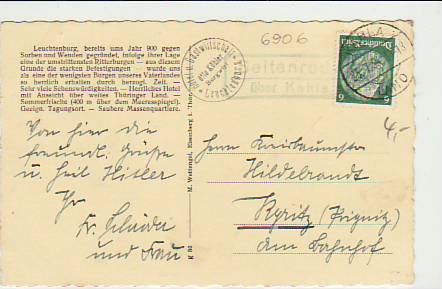 Leuchtenburg, bereits ums Jahr 900 gegen
Sorben und Wenden gegründet, infolge ihrer Lage
eine der umstrittensten Ritterburgen — aus diesem
Grunde die starken Befestigungen — wurde uns
als eine der wenigsten Burgen unseres Vaterlandes
so herrlich erhalten durch bewegte Zeit. —
Sehr viele Sehenswürdigkeiten. — Herrliches Hotel
mit Aussicht über weites Thüringer Land. —
Sommerfrische (400 m über dem Meeresspiegel).
Geeign. Tagungsort. — Saubere Massenquartiere.
6906
Deutsches Reich
6 6
4,-
Von hier die
freundl. Grüße
u. Heil Hitler
Ihr
Fr.
und Frau
M. Wettengel, Eisenberg i. Thür.
K 80
Herrn
Hildebrandt
Kyritz (Prignitz)
am Bahnhof